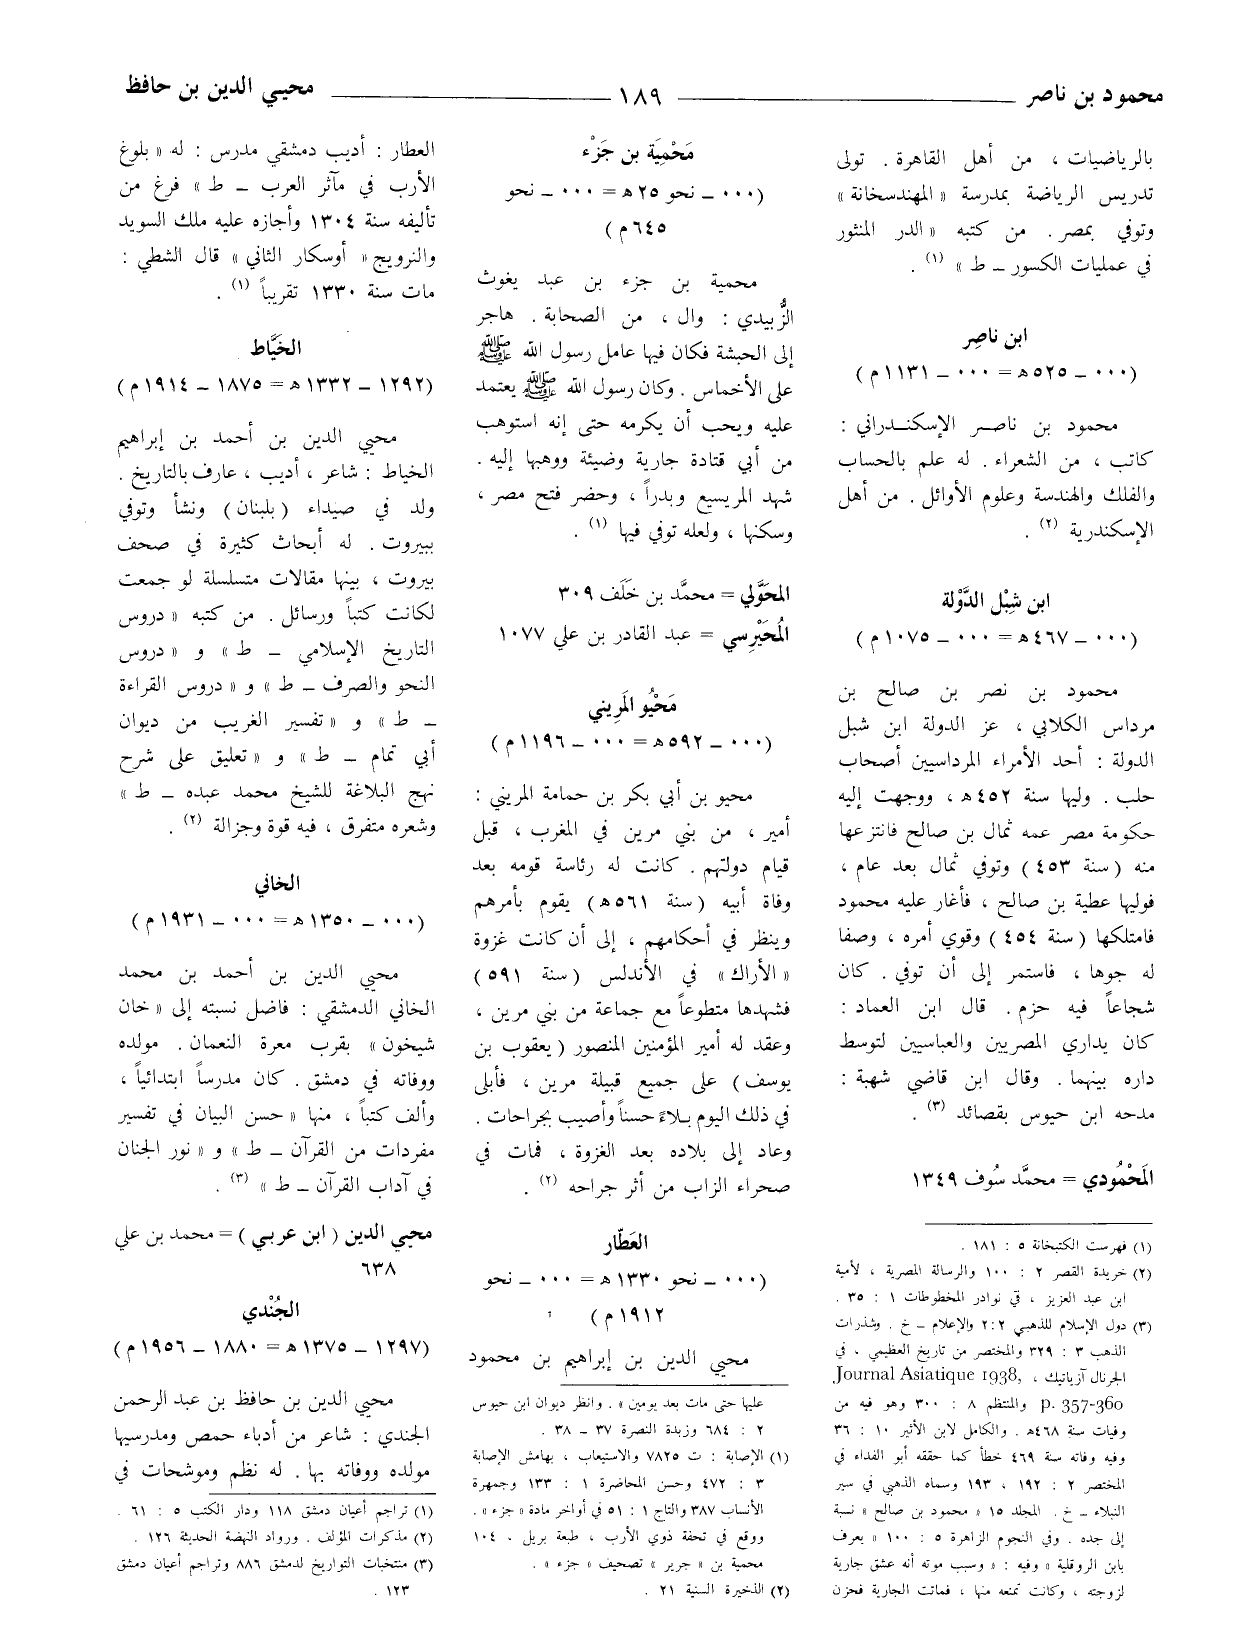 محمود بن ناصر
١٨٩
محيي الدين بن حافظ
بالرياضيات ، من أهل القاهرة . تولى
تدريس الرياضة بمدرسة « المهندسخانة »
وتوفي بمصر . من كتبه « الدر المنثور
في عمليات الكسور ــ ط » (١) .
ابن ناصِر
(٠٠٠ ــ ٥٢٥ ھ = ٠٠٠ ــ ١١٣١ م)
محمود بن ناصر الإسكندراني :
كاتب ، من الشعراء . له علم بالحساب
والفلك والهندسة وعلوم الأوائل . من أهل
الإسكندرية (٢) .
ابن شِبْل الدَّوْلة
(٠٠٠ ــ ٤٦٧ ھ = ٠٠٠ ــ ١٠٧٥ م)
محمود بن نصر بن صالح بن
مرداس الكلابي ، عز الدولة ابن شبل
الدولة : أحد الأمراء المرداسيين أصحاب
حلب . وليها سنة ٤٥٢ ھ ، ووجهت إليه
حكومة مصر عمه ثمال بن صالح فانتزعها
منه ( سنة ٤٥٣ ) وتوفي ثمال بعد عام ،
فوليها عطية بن صالح ، فأغار عليه محمود
فامتلكها ( سنة ٤٥٤ ) وقوي أمره ، وصفا
له جوها ، فاستمر إلى أن توفي . كان
شجاعاً فيه حزم . قال ابن العماد :
كان يداري المصريين والعباسيين لتوسط
داره بينهما . وقال ابن قاضي شهبة :
مدحه ابن حيوس بقصائد (٣) .
المَحْمُودي = محمَّد سُوف ١٣٤٩
(١) فهرست الكتبخانة ٥ : ١٨١ .
(٢) خريدة القصر ٢ : ١٠٠ والرسالة المصرية ، لأمية
ابن عبد العزيز ، في نوادر المخطوطات ١ : ٣٥ .
(٣) دول الإسلام للذهبي ٢:٢ والإعلام ــ خ . وشذرات
الذهب ٣ : ٣٢٩ والمختصر من تاريخ العظيمي ، في
الجرنال آزياتيك ، Journal Asiatique 1938,
p. 357-360 والمنتظم ٨ : ٣٠٠ وهو فيه من
وفيات سنة ٤٦٨ھ . والكامل لابن الأثير ١٠ : ٣٦
وفيه وفاته سنة ٤٦٩ خطأ كما حققه أبو الفداء في
المختصر ٢ : ١٩٢ ، ١٩٣ وسماه الذهبي في سير
النبلاء ــ خ . المجلد ١٥ « محمود بن صالح » نسبة
إلى جده . وفي النجوم الزاهرة ٥ : ١٠٠ « يعرف
بابن الروقلية » وفيه : « وسبب موته أنه عشق جارية
لزوجته ، وكانت تمنعه منها ، فماتت الجارية فحزن
مَحْمِيَة بن جَزْء
(٠٠٠ ــ نحو ٢٥ ھ = ٠٠٠ ــ نحو
٦٤٥ م)
محمية بن جزء بن عبد يغوث
الزُّبيدي : وال ، من الصحابة . هاجر
إلى الحبشة فكان فيها عامل رسول الله ﷺ
على الأخماس . وكان رسول الله ﷺ يعتمد
عليه ويحب أن يكرمه حتى إنه استوهب
من أبي قتادة جارية وضيئة ووهبها إليه .
شهد المريسيع وبدراً ، وحضر فتح مصر ،
وسكنها ، ولعله توفي فيها (١) .
المحَوَّلي = محمَّد بن خَلَف ٣٠٩
المُحَيْرِسي = عبد القادر بن علي ١٠٧٧
مَحْيُو المَرِيني
(٠٠٠ ــ ٥٩٢ ھ = ٠٠٠ ــ ١١٩٦ م)
محيو بن أبي بكر بن حمامة المريني :
أمير ، من بني مرين في المغرب ، قبل
قيام دولتهم . كانت له رئاسة قومه بعد
وفاة أبيه ( سنة ٥٦١ ھ ) يقوم بأمرهم
وينظر في أحكامهم ، إلى أن كانت غزوة
« الأراك » في الأندلس ( سنة ٥٩١ )
فشهدها متطوعاً مع جماعة من بني مرين ،
وعقد له أمير المؤمنين المنصور ( يعقوب بن
يوسف ) على جميع قبيلة مرين ، فأبلى
في ذلك اليوم بلاءً حسناً وأصيب بجراحات .
وعاد إلى بلاده بعد الغزوة ، فمات في
صحراء الزاب من أثر جراحه (٢) .
العَطّار
(٠٠٠ ــ نحو ١٣٣٠ ھ = ٠٠٠ ــ نحو
١٩١٢ م)
محيي الدين بن إبراهيم بن محمود
عليها حتى مات بعد يومين » . وانظر ديوان ابن حيوس
٢ : ٦٨٤ وزبدة النصرة ٣٧ ــ ٣٨ .
(١) الإصابة : ت ٧٨٢٥ والاستيعاب ، بهامش الإصابة
٣ : ٤٧٢ وحسن المحاضرة ١ : ١٣٣ وجمهرة
الأنساب ٣٨٧ والتاج ١ : ٥١ في أواخر مادة « جزء » .
ووقع في تحفة ذوي الأرب ، طبعة بريل ، ١٠٤
محمية بن « جرير » تصحيف « جزء » .
(٢) الذخيرة السنية ٢١ .
العطار : أديب دمشقي مدرس : له « بلوغ
الأرب في مآثر العرب ــ ط » فرغ من
تأليفه سنة ١٣٠٤ وأجازه عليه ملك السويد
والنرويج « أوسكار الثاني » قال الشطي :
مات سنة ١٣٣٠ تقريباً (١) .
الخَيَّاط
(١٢٩٢ ــ ١٣٣٢ ھ = ١٨٧٥ ــ ١٩١٤ م)
محيي الدين بن أحمد بن إبراهيم
الخياط : شاعر ، أديب ، عارف بالتاريخ .
ولد في صيداء ( بلبنان ) ونشأ وتوفي
ببيروت . له أبحاث كثيرة في صحف
بيروت ، بينها مقالات متسلسلة لو جمعت
لكانت كتباً ورسائل . من كتبه « دروس
التاريخ الإسلامي ــ ط » و « دروس
النحو والصرف ــ ط » و « دروس القراءة
ــ ط » و « تفسير الغريب من ديوان
أبي تمام ــ ط » و « تعليق على شرح
نهج البلاغة للشيخ محمد عبده ــ ط »
وشعره متفرق ، فيه قوة وجزالة (٢) .
الخاني
(٠٠٠ ــ ١٣٥٠ ھ = ٠٠٠ ــ ١٩٣١ م)
محيي الدين بن أحمد بن محمد
الخاني الدمشقي : فاضل نسبته إلى « خان
شيخون » بقرب معرة النعمان . مولده
ووفاته في دمشق . كان مدرساً ابتدائياً ،
وألف كتباً ، منها « حسن البيان في تفسير
مفردات من القرآن ــ ط » و « نور الجنان
في آداب القرآن ــ ط » (٣) .
محيي الدين ( ابن عربي ) = محمد بن علي
٦٣٨
الجُنْدي
(١٢٩٧ ــ ١٣٧٥ ھ = ١٨٨٠ ــ ١٩٥٦ م)
محيي الدين بن حافظ بن عبد الرحمن
الجندي : شاعر من أدباء حمص ومدرسيها
مولده ووفاته بها . له نظم وموشحات في
(١) تراجم أعيان دمشق ١١٨ ودار الكتب ٥ : ٦١ .
(٢) مذكرات المؤلف . ورواد النهضة الحديثة ١٢٦ .
(٣) منتخبات التواريخ لدمشق ٨٨٦ وتراجم أعيان دمشق
١٢٣ .